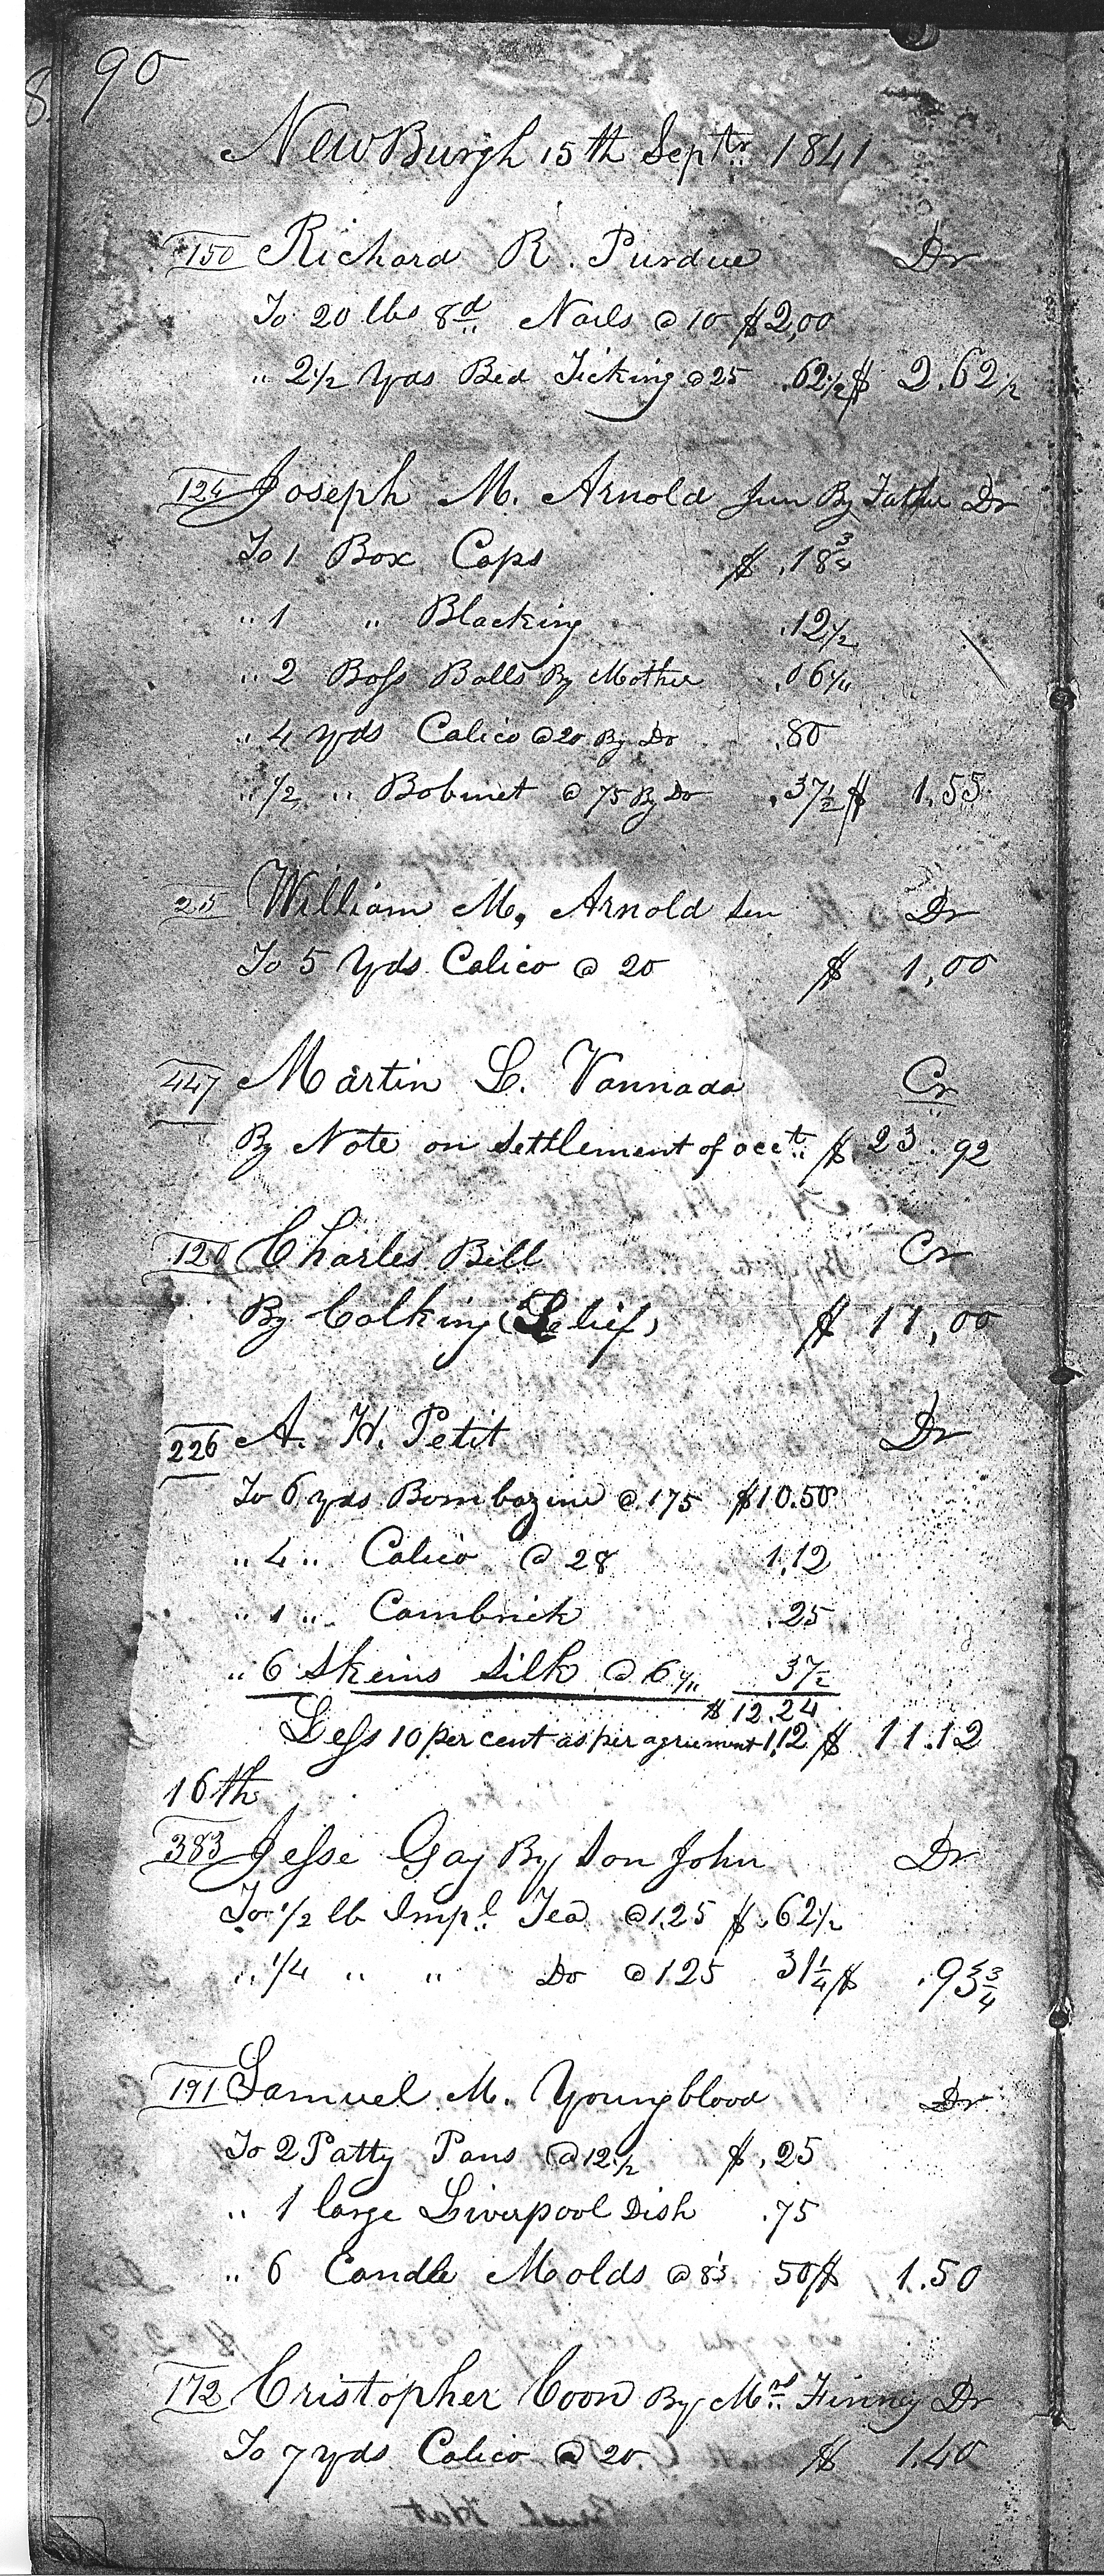 90
NewBurgh 15th Septr 1841
150 Richard R. Purdue Dr
To 20 lbs 8d Nails @ 10 $2,00
" 2 1/2 Yds Bed Ticking @ 25 .62 1/2 $ 2.62 1/2
124 Joseph M. Arnold Jun By Father Dr
To 1 Box Caps $ .18 3/4
" 1 " Blacking .12 1/2
" 2 Boss Balls By Mother .06 1/4
" 4 yds Calico @ 20 By Do .80
" 1/2 " Bobinet @ 75 By Do .37 1/2 $ 1.55
25 William M. Arnold Sen Dr
To 5 Yds Calico @ 20 $ 1,00
447 Martin L. Vannada Cr
By Note on Settlement of acct. $ 23.92
120 Charles Bell Cr
By Calking $ 11,00
226 A. H. Petit Dr
To 6 yds Bombazine @ 175 $10.50
" 4 " Calico @ 28 1.12
" 1 " Cambrick .25
" 6 Skeins Silk @ 6 1/4 37 1/2
$ 12.24
Less 10 per cent as per agriement 1.12 $ 11.12
16th
383 Jesse Gay By Son John Dr
To 1/2 lb Impl. Tea @ 1.25 $ .62 1/2
" 1/4 " " Do @ 1.25 31 1/4 $ .93 3/4
191 Samuel M. Youngblood Dr
To 2 Patty Pans @ 12 1/2 $ .25
" 1 large Liverpool Dish .75
" 6 Candle Molds @ 8 1/3 50 $ 1.50
172 Cristopher Coon By Mrs Finney Dr
To 7 yds Calico @ 20 $ 1.40